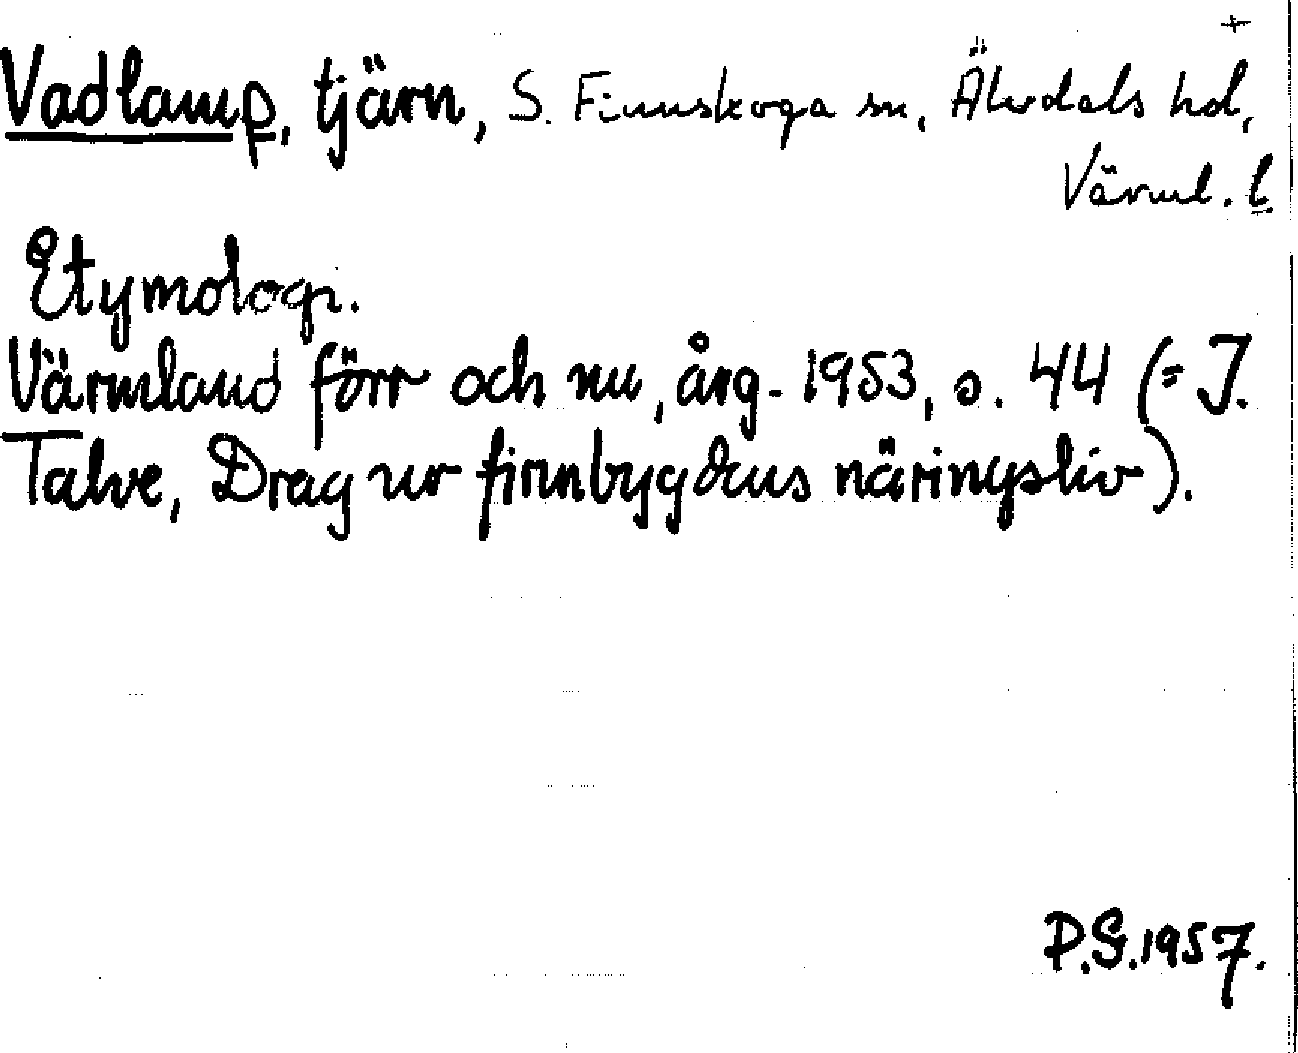 +
Vadlamp, tjärn, S. Finnskoga sn, Älvdals hd,
Värml. l.
Etymologi.
Värmland förr och nu, årg. 1953, s. 44 (= I.
Talve, Drag ur finnbygdens näringsliv).
P.G. 1957.